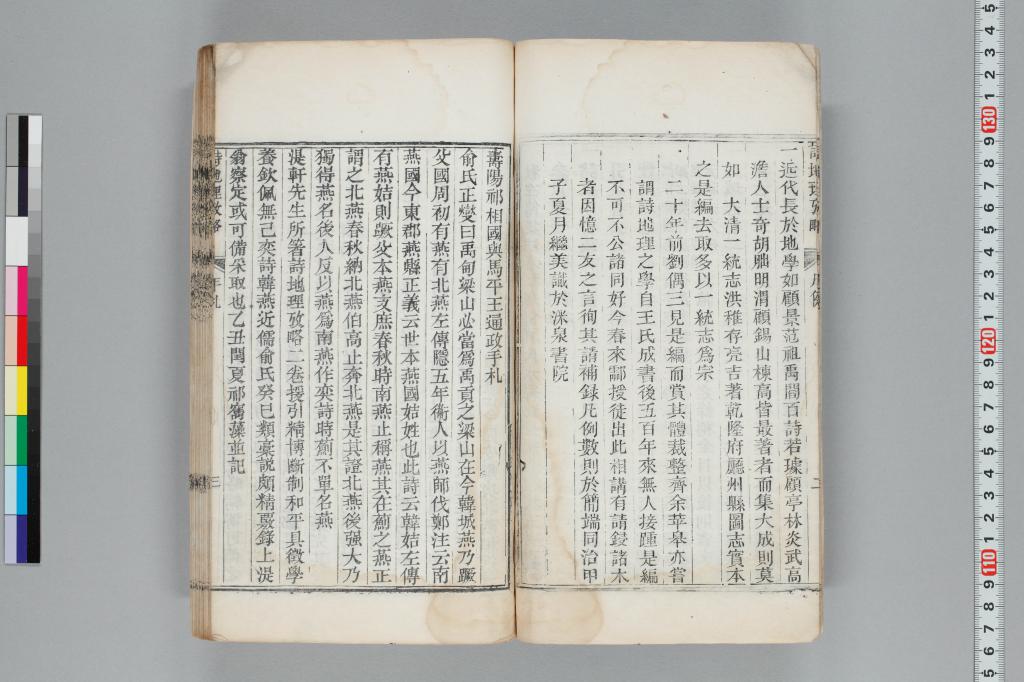 一近代長於地學如顧景范祖禹閻百詩若璩顧亭林炎武高
澹人士奇胡朏明渭顧錫山棟高皆最著者而集大成則莫
如 大清一統志洪稚存亮吉著乾隆府廳州縣圖志實本
之是編去取多以一統志為宗
二十年前劉偶三見是編而賞其體裁整齊余苹皋亦嘗
謂詩地理之學自王氏成書後五百年來無人接踵是編
不可不公諸同好今春來鄠授徒出此相講有請鋟諸木
者因憶二友之言徇其請補録凡例數則於簡端同治甲
子夏月繼美識於渼泉書院
壽陽祁相國與馬平王通政手札
俞氏正燮曰禹甸梁山必當爲禹貢之梁山在今韓城燕乃蹶
父國周初有燕有北燕左傳隱五年衛人以燕師伐鄭注云南
燕國今東郡燕縣正義云世本燕國姞姓也此詩云韓姞左傳
有燕姞則蹶父本燕支庶春秋時南燕止稱燕其在薊之燕正
謂之北燕春秋納北燕伯高止奔北燕是其證北燕後强大乃
獨得燕名後人反以燕爲南燕作奕詩時薊不單名燕
湜軒先生所箸詩地理攷略二卷援引精博斷制和平具徵學
養欽佩無已奕詩韓燕近儒俞氏癸巳類稾説頗精覈錄上湜
翁察定或可備采取也乙丑閏夏祁寯藻並記
詩地理攷略
手札
三
詩地理攷略
二
110
120
130